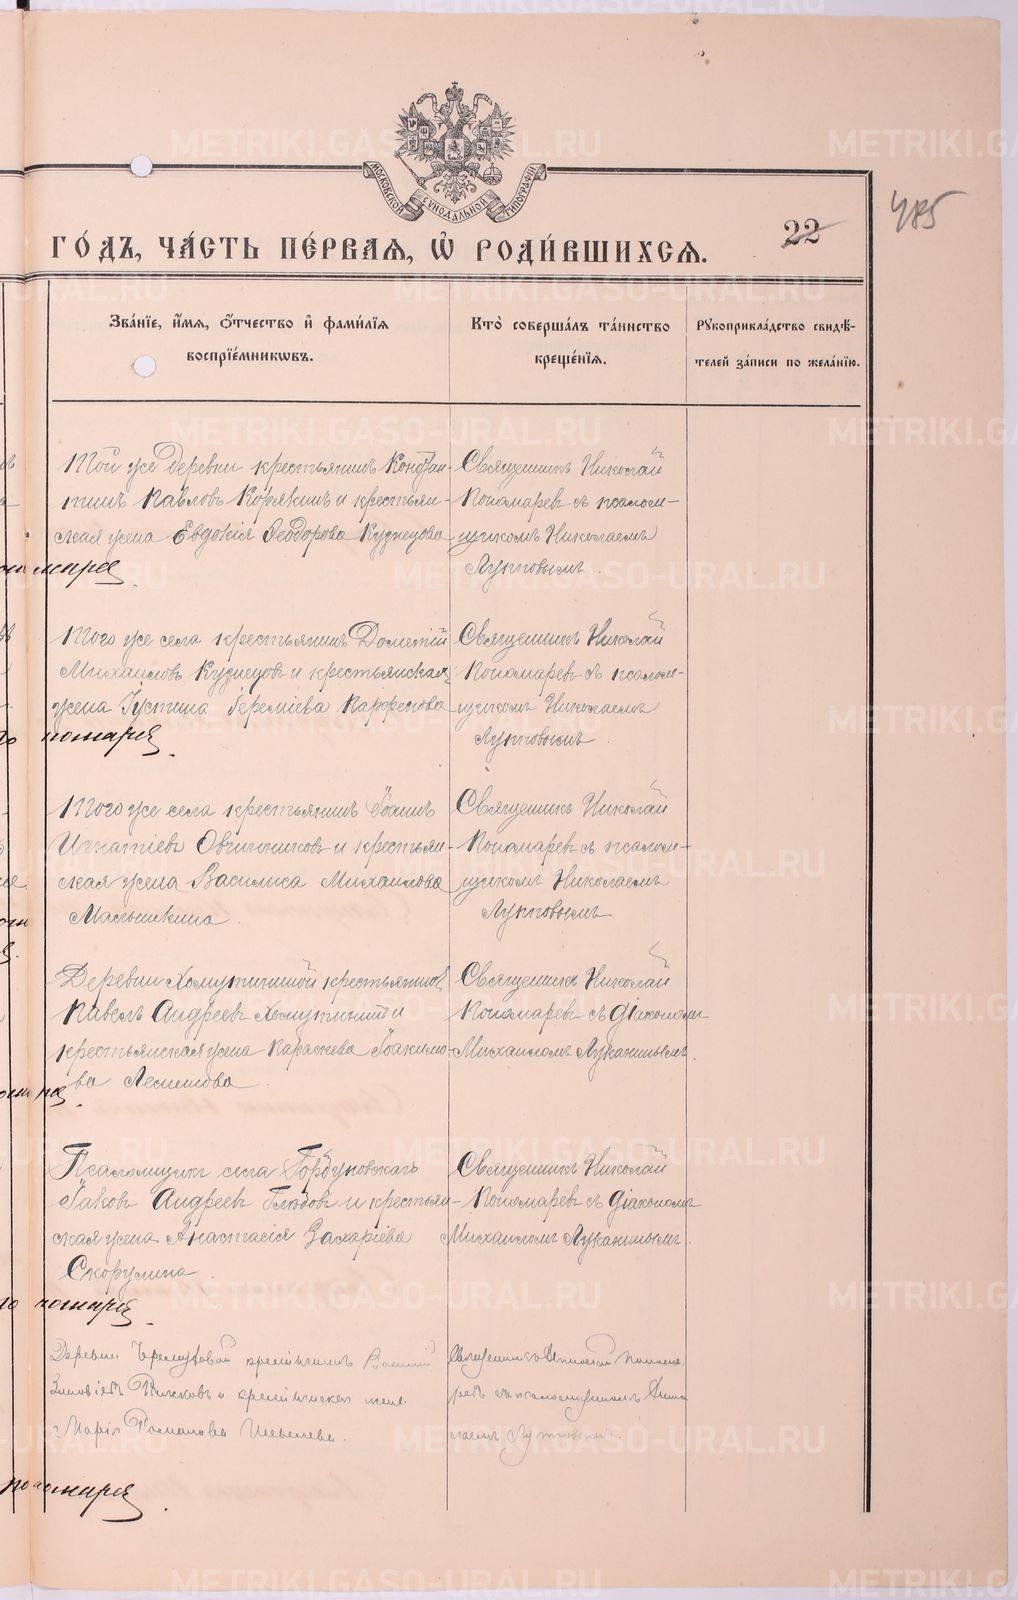 МОСКОВСКОЙ СѴНОДАЛЬНОЙ ТИПОГРАФІИ
485
22
ГО́ДЪ, ЧА́СТЬ ПЕ́РВАЯ, Ѡ҆ РОДИ́ВШИХСЯ.
Зва́нїе, и҆́мѧ, ѻ҆́тчество и҆ фами́лїѧ
воспрїе́мникѡвъ.
Кто̀ соверша́лъ та́инство
креще́нїѧ.
Рꙋкоприкла́дство свидѣ́-
телей за́писи по жела́нїю.
Той же деревни крестьянинъ Констан-
тинъ Павловъ Корякинъ и крестьян-
ская жена Евдокія Ѳеодорова Кузнецова
Священникъ Николай
Пономаревъ съ псалом-
щикомъ Николаемъ
Луптовымъ.
Того же села крестьянинъ Дометій
Михаиловъ Кузнецовъ и крестьянская
жена Іустина Іереміева Парфенова
Пономарев.
Священникъ Николай
Пономаревъ съ псалом-
щикомъ Николаемъ
Луптовымъ.
Того же села крестьянинъ Іоаннъ
Игнатіевъ Овчинниковъ и крестьян-
ская жена Василиса Михаилова
Малышкина.
Священникъ Николай
Пономаревъ съ псалом-
щикомъ Николаемъ
Луптовымъ
Деревни Хомутининой крестьянинъ
Павелъ Андреевъ Хомутининъ и
крестьянская жена Параскева Іоакимо-
ва
Священникъ Николай
Пономаревъ съ діакономъ
Михаиломъ Луканинымъ.
Псаломщикъ села Горбуновскаго
Іаковъ Андреевъ Глѣбовъ и крестьян-
ская жена Анастасія Захаріева
Скорулина.
Пономарев.
Священникъ Николай
Пономаревъ съ діакономъ
Михаиломъ Луканинымъ.
Деревни крестьянинъ Василій
Зиновіевъ и крестьянская жена
Марія Романова Шевелева.
Пономарев.
Священникъ Николай Понома-
ревъ съ псаломщикомъ Нико-
лаемъ Луптовымъ.
METRIKI.GASO-URAL.RU